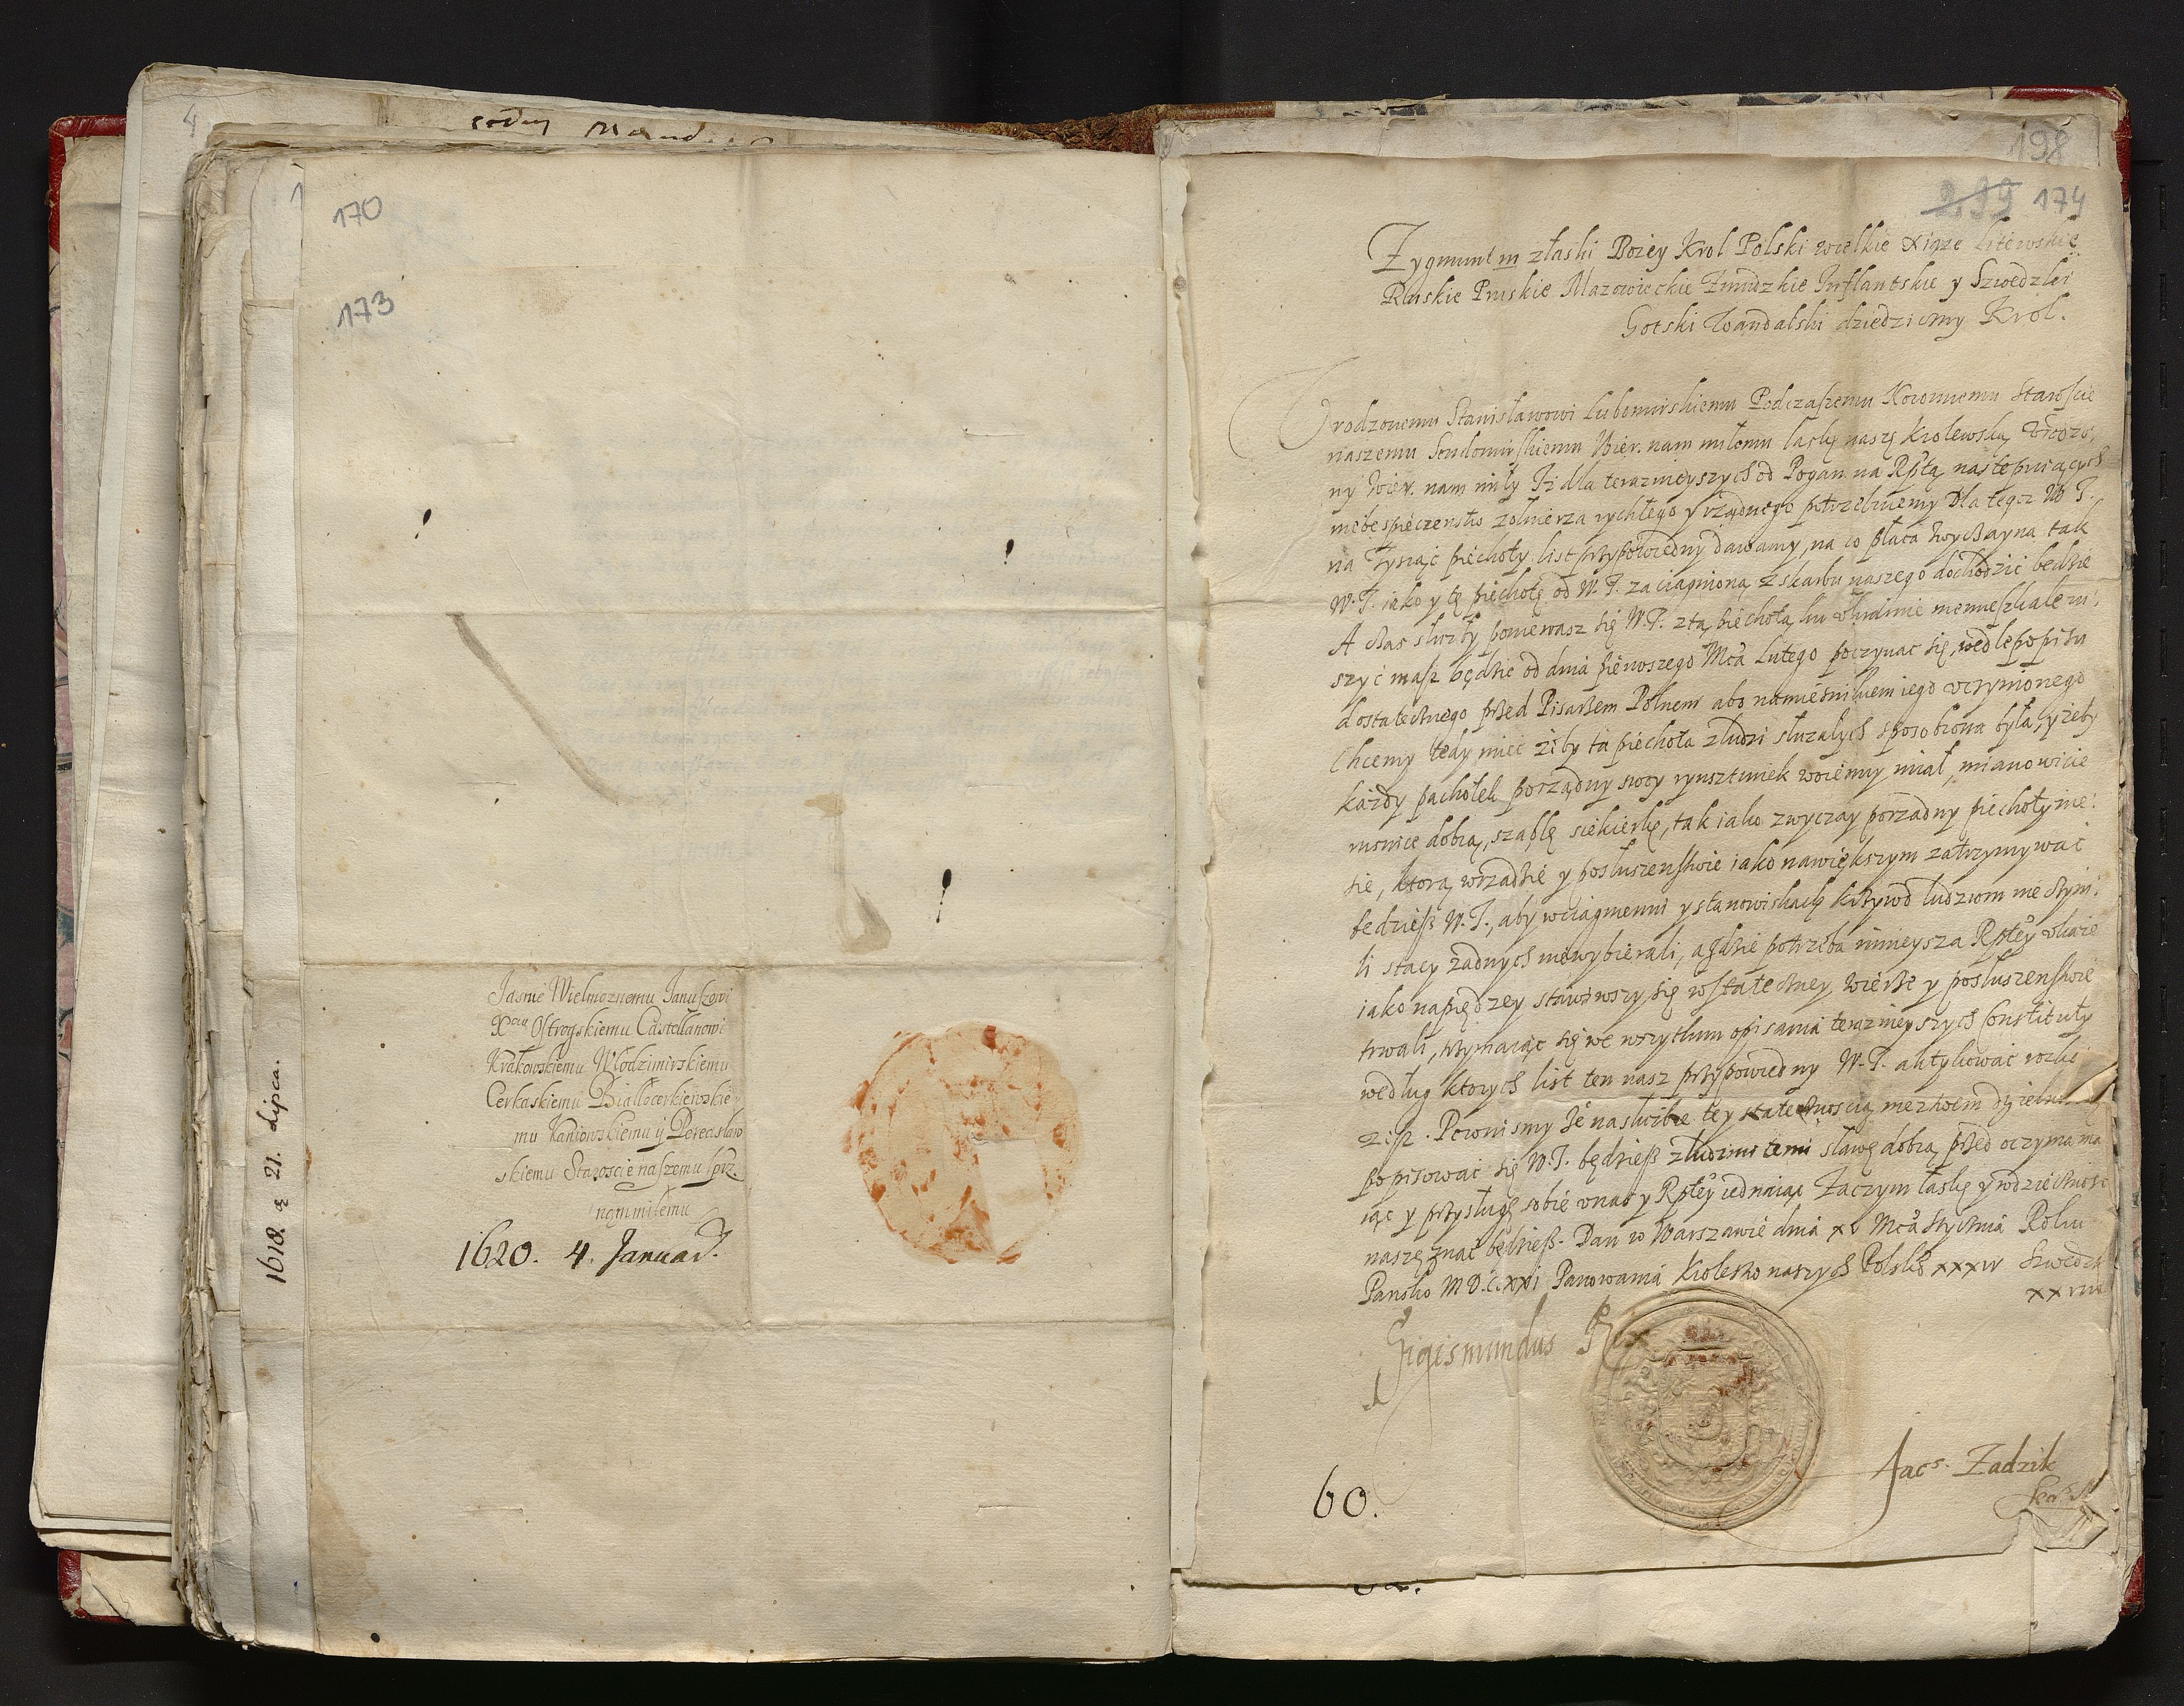 4
170
173
Jasnie Wielmoznemu Januszowi
Xciu Ostrogskiemu Castellanowi
Krakowskiemu Włodzimirskiemu
Cerkaskiemu Białłocerkiewskie
mu Kaniowskiemu ÿ Pereasław
skiemu Staroscie naszemu
nam miłemu
1620. 4. Januar.
1618. 21. Lipca.
198
299 174
Zygmunt III złaski Bożey Krol Polski wielkie Xiąże Litewskie
Ruskie Pruskie Mazowieckie Żmudzkie Inflantskie y Szwedzki
Gotski Wandalski dziedziczny Krol.
Vrodzonemu Stanisławowi Lubomirskiemu Podczaszemu Koronnemu Staroscie
naszemu Sendomirskiemu Wier. nam miłemu łaskę naszę Krolewską Vrodzo,
ny Wier. nam miły Iż dla teraznieyszych od Pogan na Rptą następuiących
niebespieczenstw żołnierza rychłego y rządnego potrzebuiemy Dla tego W T.
na Tysiąc piechoty list przypowiedny dawamy, na co płaca zwyczayna tak
W.T. iako y tę piechotę od W.T. zaciągnioną z skarbu naszego dochodzić będzie
A czas służby ponieważ się W.T. z tą piechotą ku Vkrainie niemieszkale ru,
szyć masz będzie od dnia pierwszego Mca Lutego poczynac się, wedle popisu
dostatecznego przed Pisarzem Polnem abo namiesnikiem iego vczynionego
Chcemy tedy mieć żeby ta piechota z ludzi służałych sposobiona była, y żeby
każdy pachołek porządny swoy rynsztunek woienny miał, mianowicie
rusnicę dobrą, szablę siekierkę, tak iako zwyczay porządny piechoty nie,
sie, ktorą wrządzie y posłuszenstwie iako nawiększym zatrzymywać
będziesz W.T., aby wciągnieniu y stanowiskach krzywd ludziom nie czyni,
li stacy żadnych niewybierali, a gdzie potrzeba ninieysza Rptey vkaże
iako naprędzey stawiwszy się wstateczney wierze y posłuszenstwie
trwali, trzymaiąc się we wszytkim opisania teraznieyszych Constituty
według ktorych list ten nasz przypowiedny W.T. aktykować rozka
żesz. Pewnismy że na służbie tey statecznoscią męztwem
popisować się W.T. będziesz z ludzmi temi sławę dobrą przed oczyma ma
iąc y przysługę sobie v nas y Rptey iednaiąc Zaczym łaskę y wdzięcznosc
naszę znać będziesz. Dan w Warszawie dnia xv Mca Stycznia Roku
Pansko MDCXXI Panowania Krolestw naszych Polskie xxxiv Szwedzk
xxviii
Sigismundus Rex
60.
Jacs. Zadzik